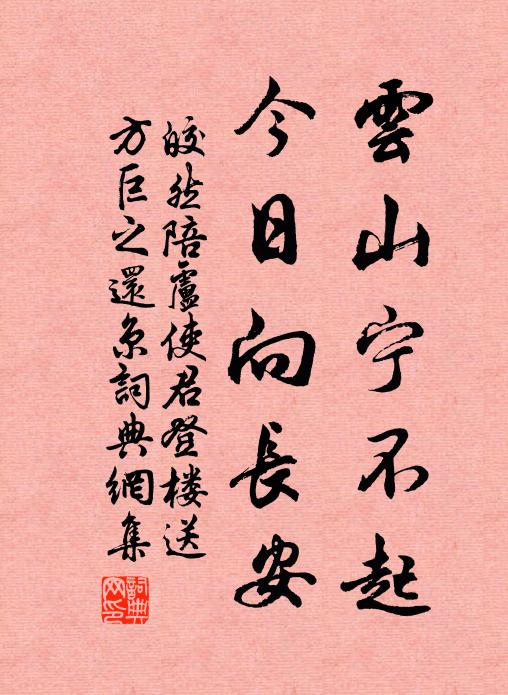 雲山宁不起
今日向長安
皎然陪盧使君登楼送
方巨之還京詞典網集
詞典網印